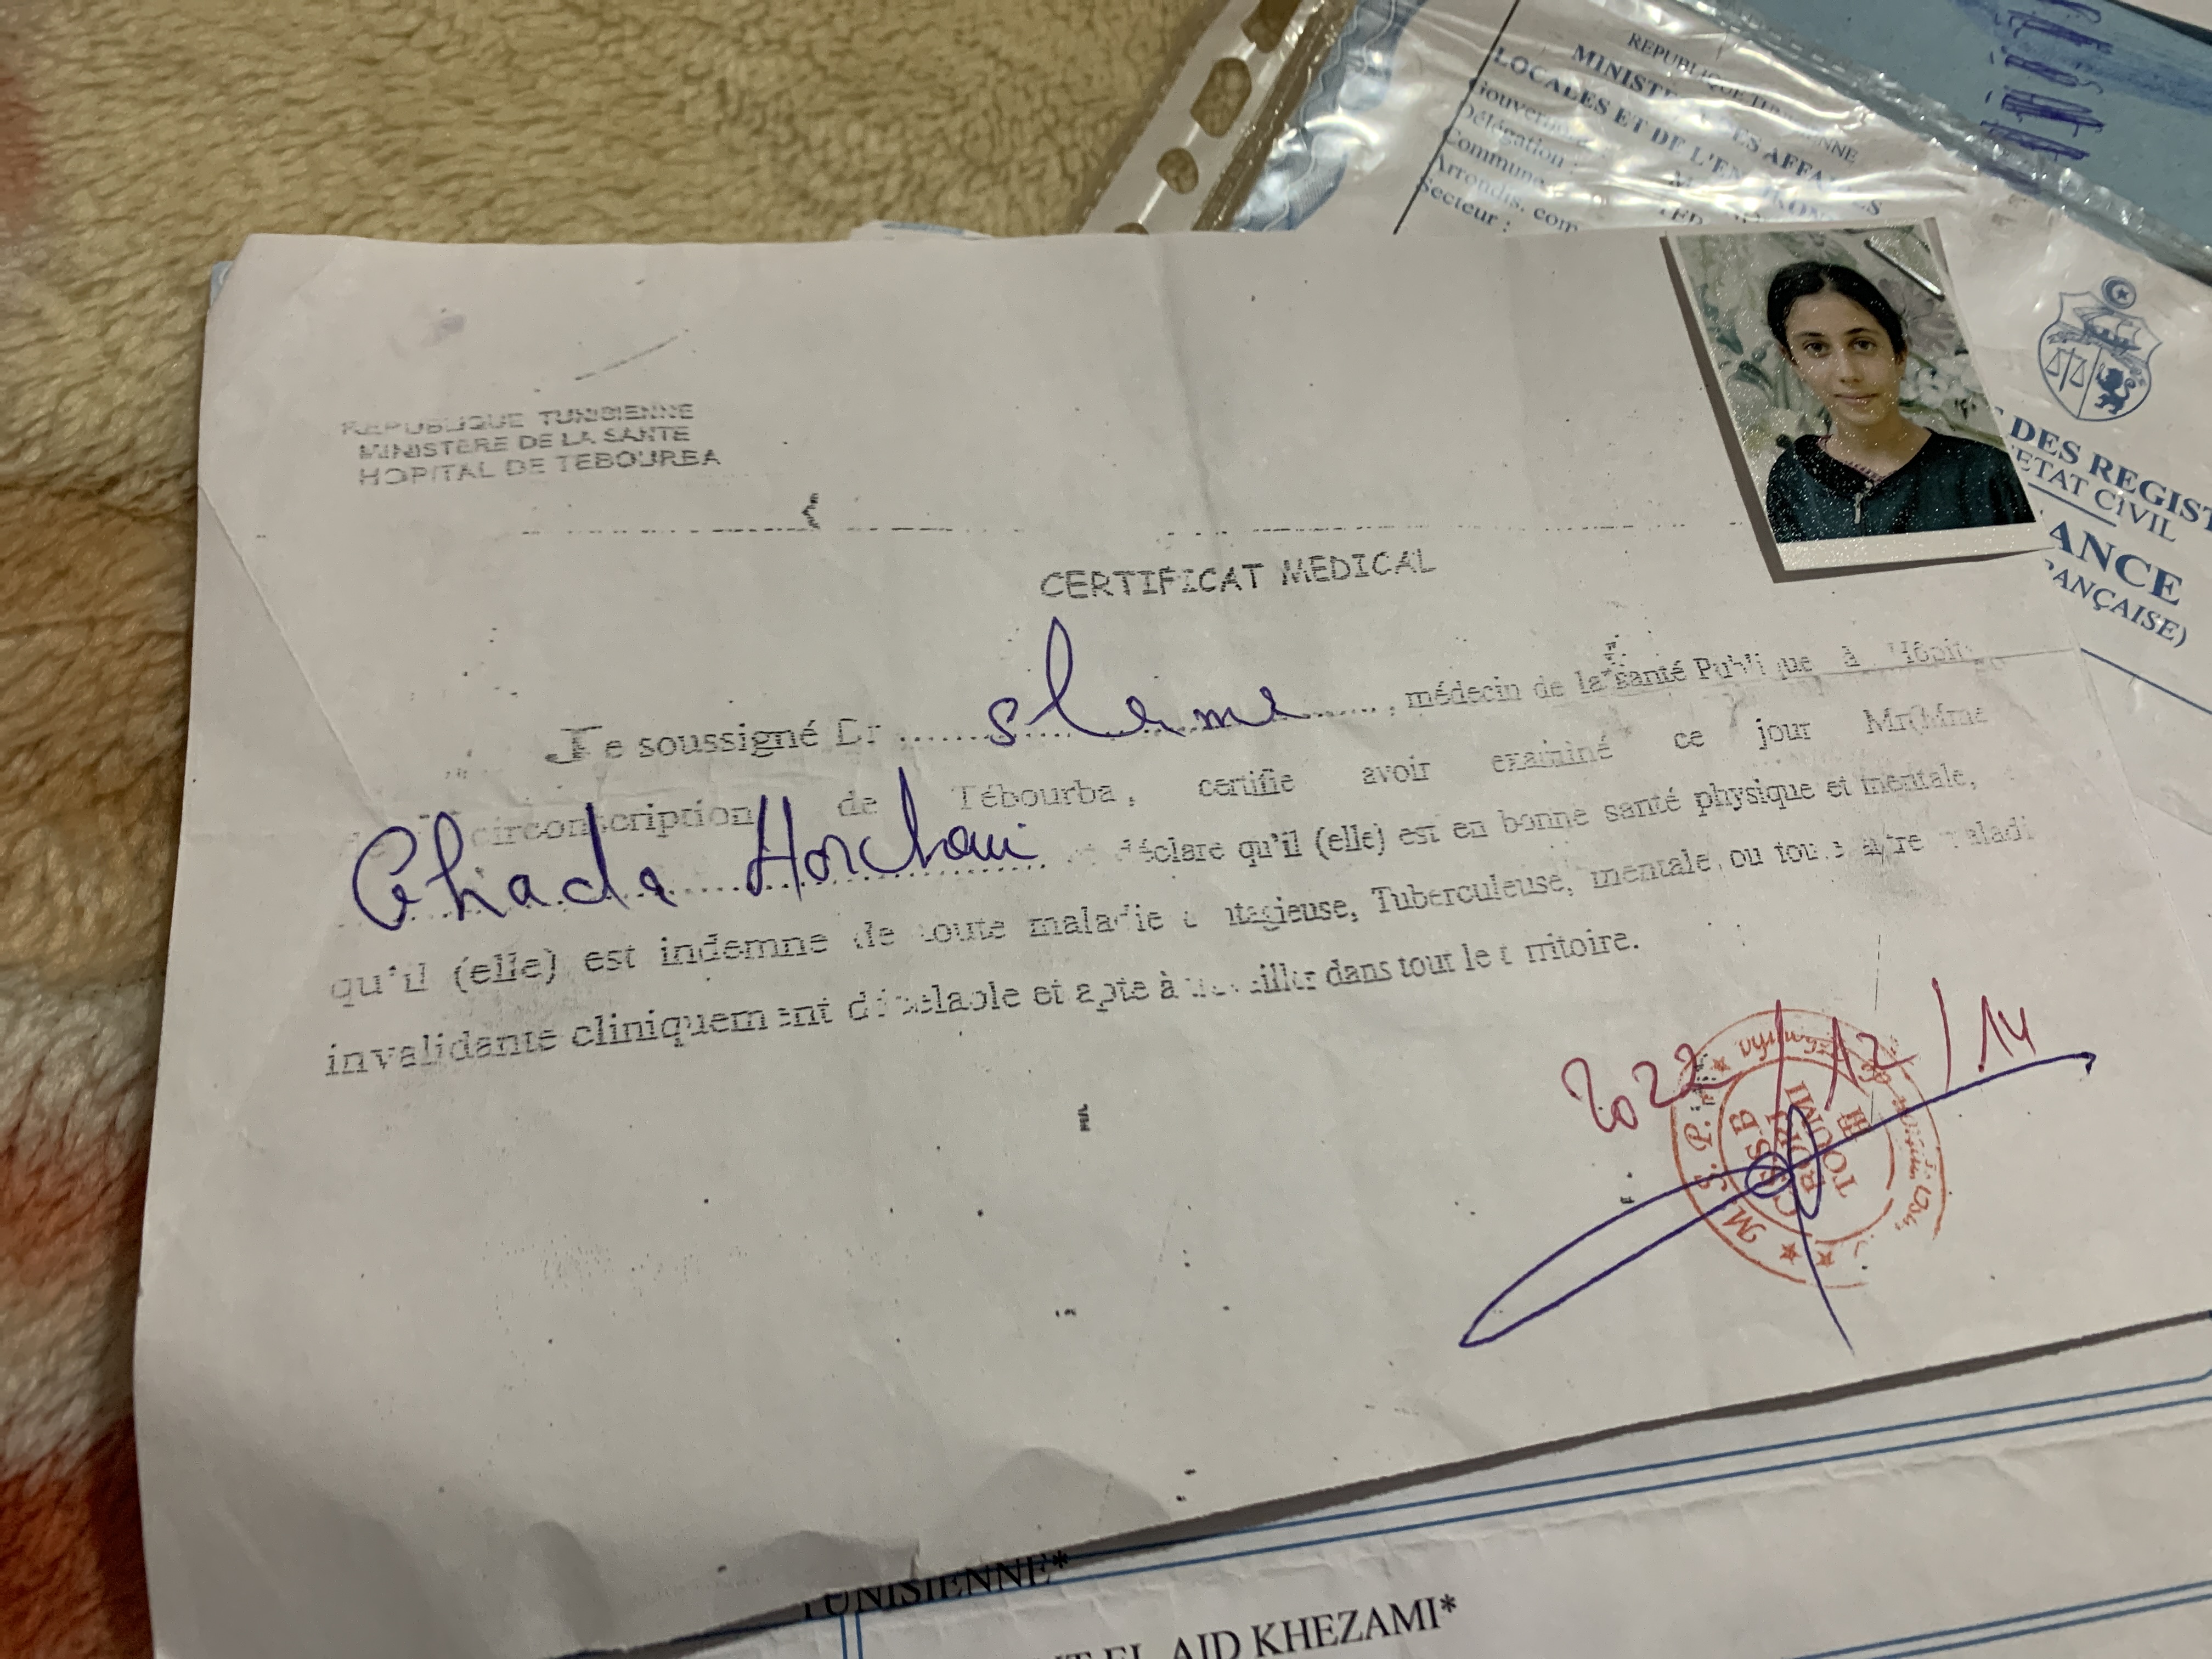 REPUBLIQUE TUNISIENNE
MINISTERE DES AFFAIRES
LOCALES ET DE L'ENVIRON
Gouver
Délégation :
Commune
Arrondis. com
Secteur :
DES REGIST
ETAT CIVIL
ANCE
ANÇAISE)
REPUBLIQUE TUNISIENNE
MINISTERE DE LA SANTE
HOPITAL DE TEBOURBA
CERTIFICAT MEDICAL
Je soussigné Dr slama, médecin de la santé Publique à Hôpit
circonscription de Tébourba, certifie avoir examiné ce jour Mr(Mme
Ghada Horchani et déclare qu'il (elle) est en bonne santé physique et mentale,
qu'il (elle) est indemne de toute maladie contagieuse, Tuberculeuse, mentale ou toute autre maladi
invalidante cliniquement décelable et apte à travailler dans tout le territoire.
2022/12/14
M. S. P.
CSSB
BORJ
TOUMI
TUNISIENNE*
EL AID KHEZAMI*